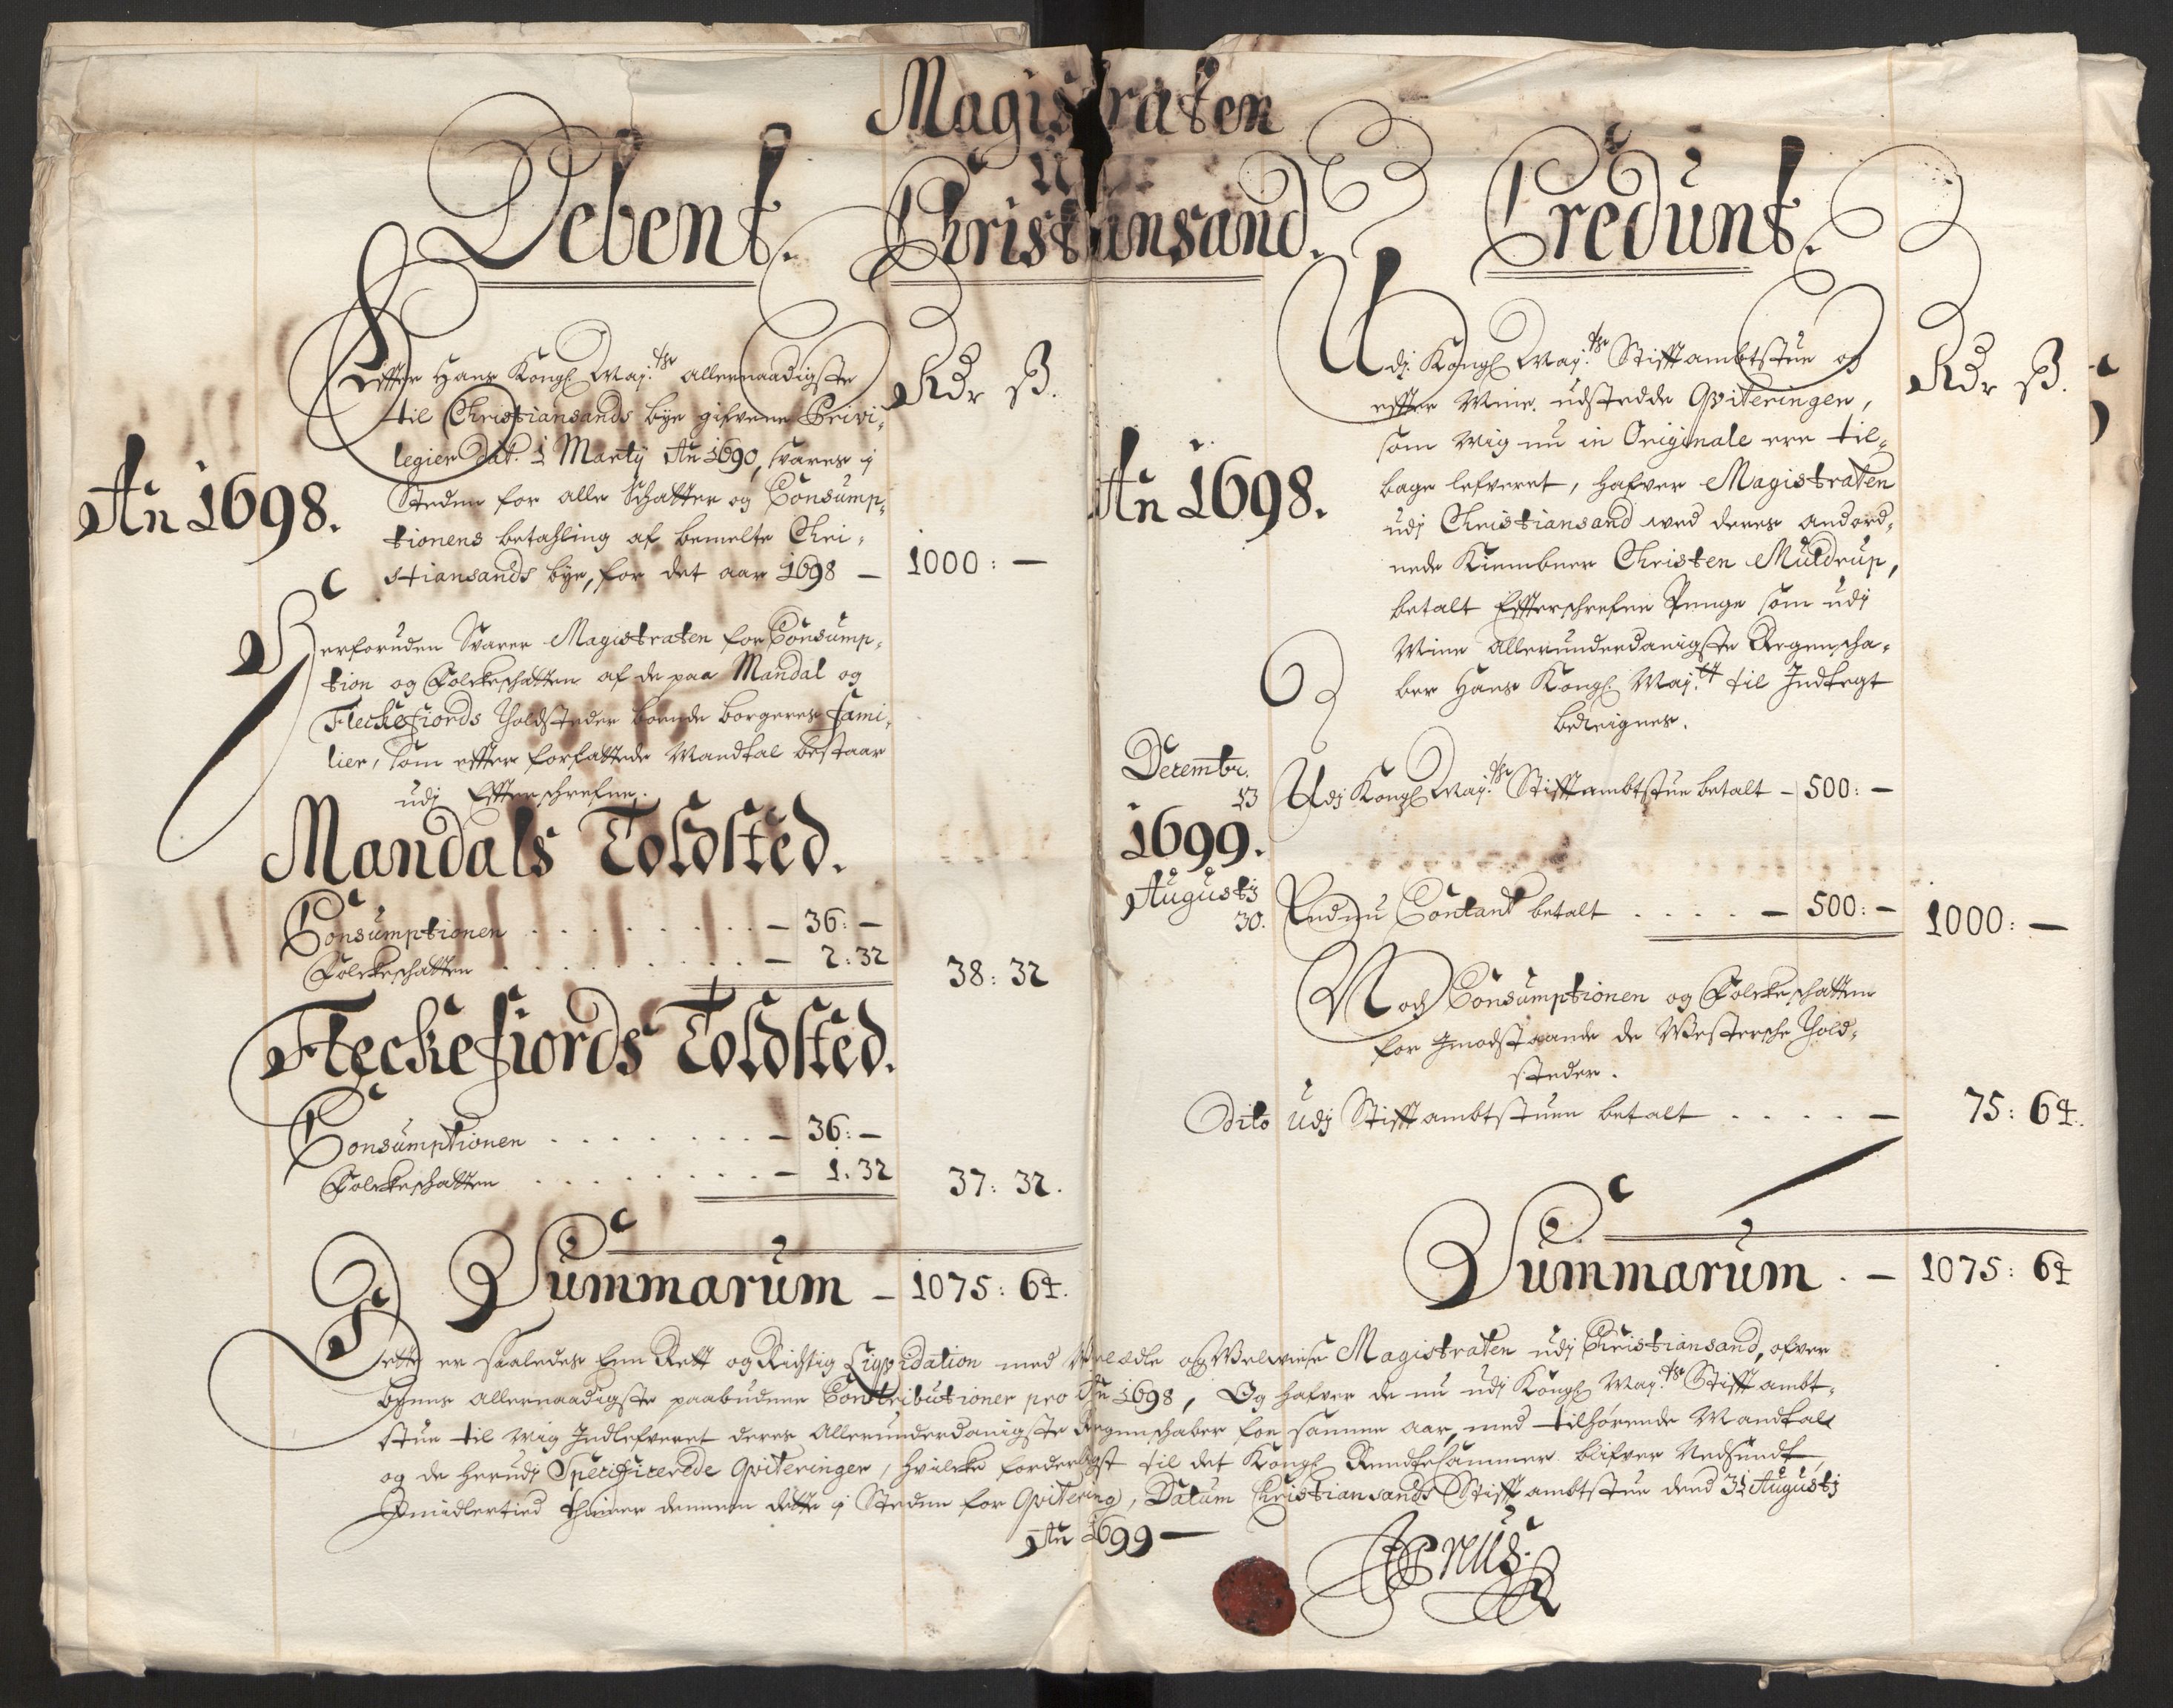 Magistraten
Udj
Christiansand.
Debent.
Rdr ß.
An 1698.
Effter Hans Kongl Maj:ts allernaadigste
til Christiansands bye gifvene Privi-
legier dat. 1 Martij An 1690, svares j
Steden for alle Schatter og Consump-
tionens betahling af bemelte Chri-
stiansands bye, for det aar 1698 — 1000: —
Herforuden Svarer Magistraten for Consump-
tion og Folckeschatten af de paa Mandal og
Fleckefiords Tholdsteder boende borgeres fami-
lier, som effter forfattede Mandtal bestaar
udj Effterschrefne.
Mandals Toldsted.
Consumptionen . . . . . . . — 36: —
Folckeschatten . . . . . . . — 2: 32 38: 32
Fleckefiords Toldsted.
Consumptionen . . . . . . . — 36: —
Folckeschatten . . . . . . . — 1. 32 37: 32.
Summarum — 1075: 64.
Credunt.
Rdr ß.
An 1698.
Udj Kongl Maj:ts Stifftambtstue og
effter Mine udstedde Qviteringer,
som Mig nu in Originale ere til-
bage lefveret, hafver Magistraten
udj Christiansand ved deres anord-
nede Kiembner Christen Muldrup,
betalt Effterschrefne Penge som udj
Mine Allerunderdanigste Regenscha-
ber Hans Kongl Maj:tt til Indtegt
bereignes.
Decembr.
13 Udj Kongl Maj:ts Stifftambtstue betalt — 500: —
1699.
Augustj
30. Endnu Contant betalt . . . . — 500: — 1000: —
Noch Consumptionen og Folckeschatten
for Imodstaaende de Westersche Thold-
steder.
Dito Udj Stifftambtstuen betalt . . . . . — 75: 64.
Summarum . — 1075: 64
Dette er saaledes Enn Rett og Richtig Liqvidation med Velædle og Velviise Magistraten udj Christiansand, ofver
byens allernaadigste paabudne Contributioner pro An 1698, Og hafver de nu udj Kongl Maj:ts Stifft ambt-
stue til Mig Indlefveret deres Allerunderdanigste Regenschaber for samme aar, med tilhørende Mandtall
og de herudj Specificerede Qviteringer, hvilcke forderligst til det Kongl Rendtekammer blifver Nedsendt,
Imidlertid thiener dennem dette j Steden for Qvitering, Datum Christiansands Stifft ambtstue dend 31 Augustj
An 1699 —